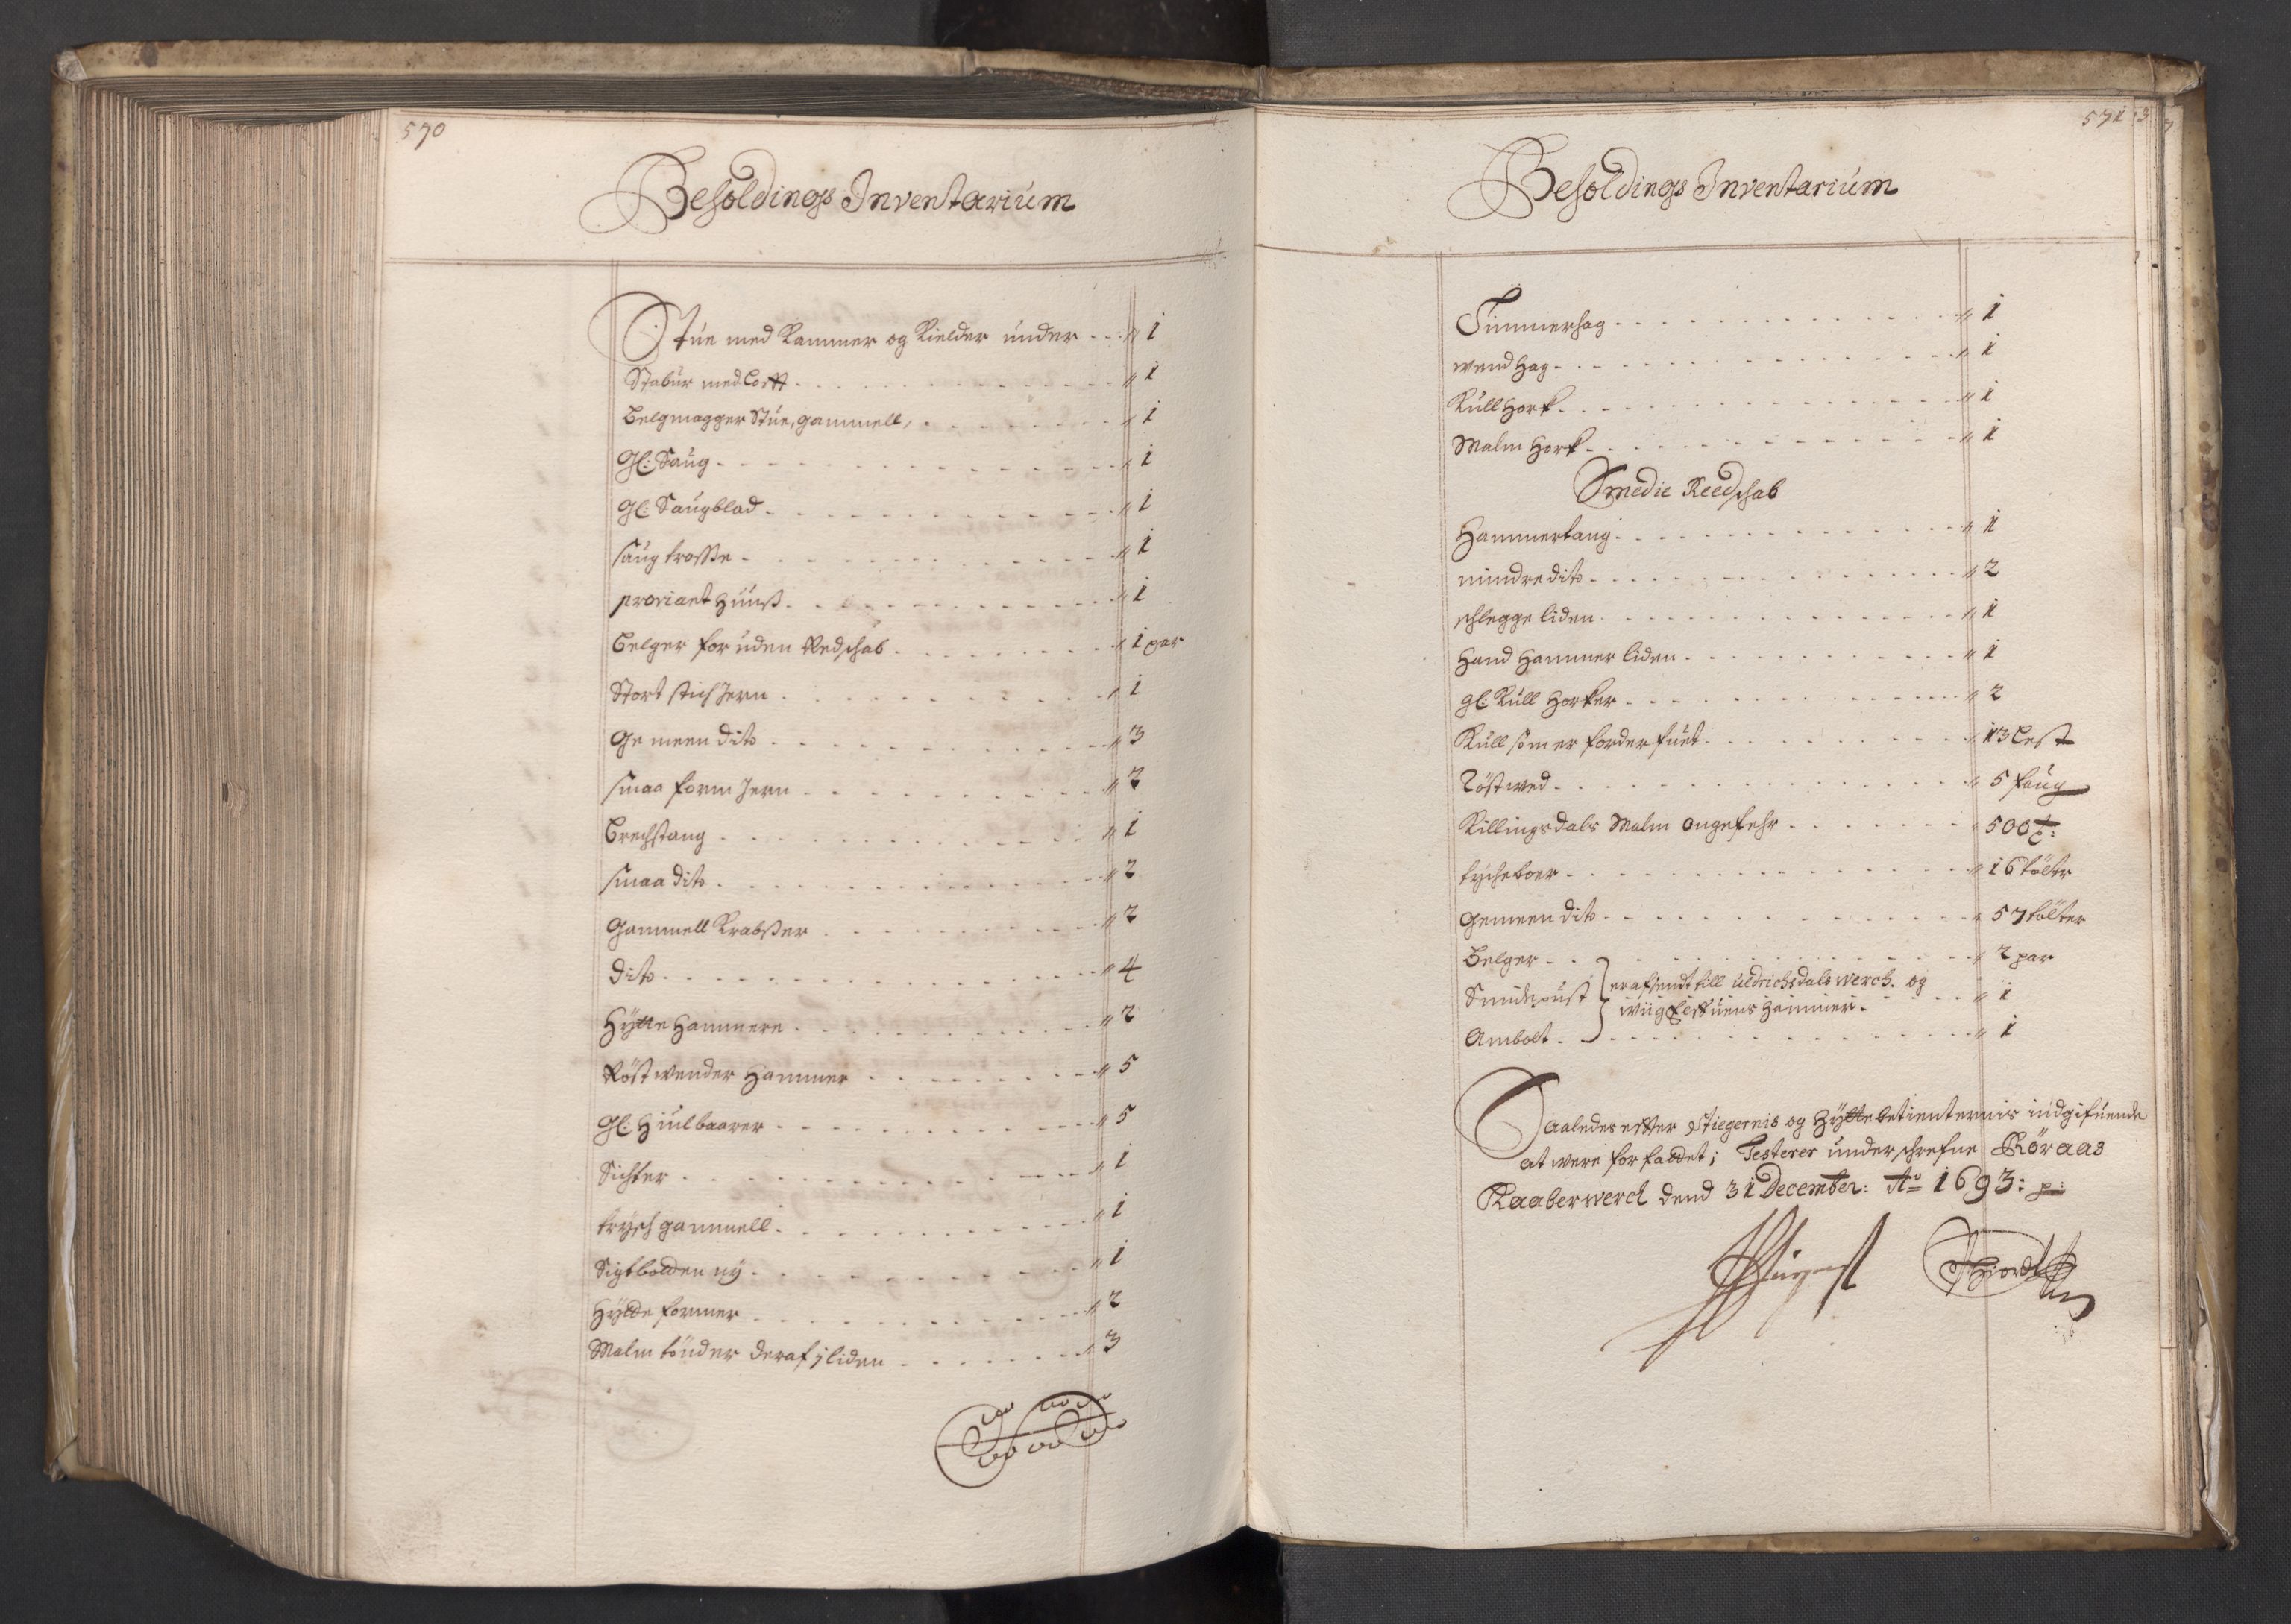 570
Beholdings Inventarium
Stue med Kammer og Kielder under " 1
Stabur med Lofft " 1
Belgmagger Stue, gammell, " 1
Gl: Saug " 1
Gl: Saugblad " 1
saug trosse " 1
proviant Huus " 1
Belger foruden Redschab " 1 par
Stort stich Jern " 1
Gemeen dito " 3
smaa form Jern " 2
Brechstang " 1
smaa dito " 2
Gammell Krabßer " 2
dito " 4
Hytte Hammere " 2
Röstwender Hammer " 5
Gl: Hiulbaarer " 5
Sichter " 1
trysch gammell " 1
Sigtbolden ny " 1
Hylde former " 2
Malm tönder deraf 1 liden " 3
571
Beholdings Inventarium
Timmerhag " 1
wend Hag " 1
Kull Hork " 1
Malm Hork " 1
Smedie Reedschab
Hammertang " 1
mindre dito " 2
schlegge liden " 1
Hand Hammer liden " 1
gl: Kull Horker " 2
Kull som er forderfuet " 13 Lest
Röstwed " 5 faug
Killingsdals Malm ongefehr " 500 t:
tycheboer " 16 tölter
Gemeen dito " 57 tölter
Belger " 2 par
Smidepust er afsendt till Uldrichsdals werch. og " 1
wiigelstuens Hammer.
Ambolt " 1
Saaledes effter Stiegernis og Hyttebetienternis indgifuende
at were forfattet; Testerer underschrefne Röraas
Kaaberwerch dend 31 December: Ao 1693: p: